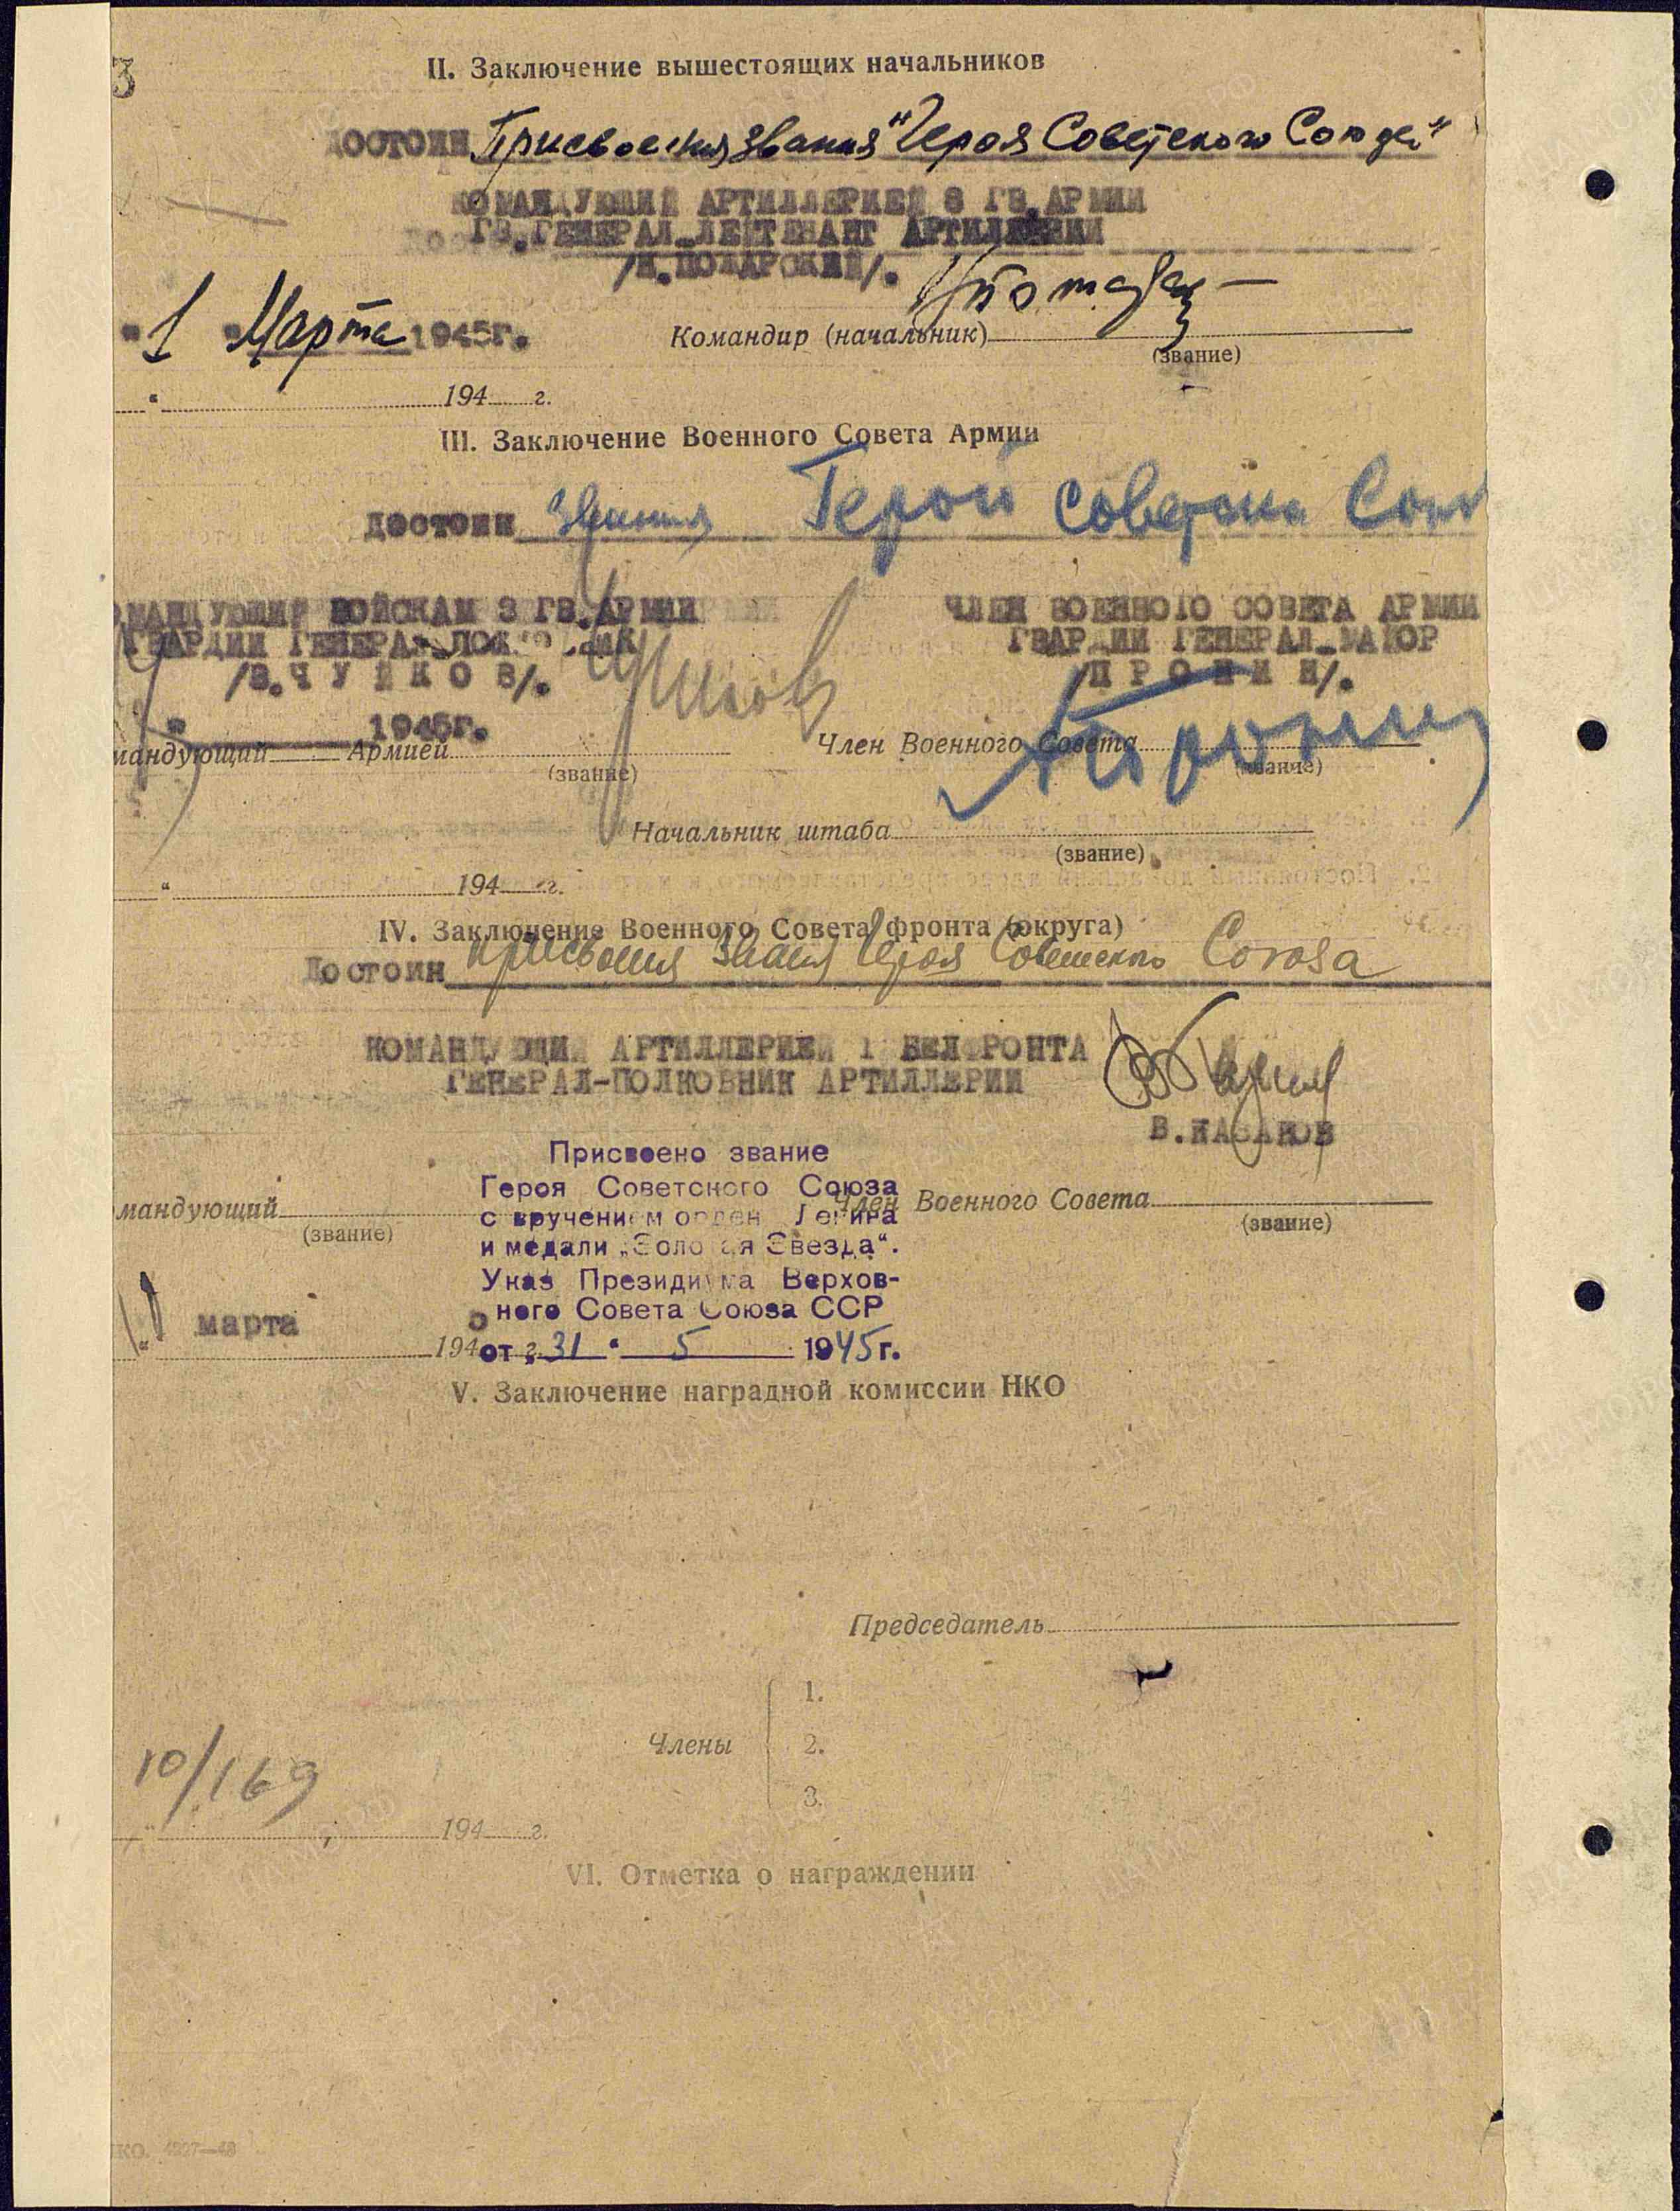 3
II. Заключение вышестоящих начальников
достоин Присвоения звания "Героя Советского Союза"
КОМАНДУЮЩИЙ АРТИЛЛЕРИЕЙ 8 ГВ. АРМИИ
ГВ. ГЕНЕРАЛ-ЛЕЙТЕНАНТ АРТИЛЛЕРИИ
/Н.ПОЖАРСКИЙ/.
"1" Марта 1945г.
Командир (начальник)
(звание)
" 194 г.
III. Заключение Военного Совета Армии
достоин звания Герой Советска Союз
МАНДУЮЩИЙ ВОЙСКАМ 8 ГВ. АРМИИ
ГВАРДИИ ГЕНЕРАЛ-ПОЛКОВНИК
/В.ЧУЙКОВ/.
Чуйков
ЧЛЕН ВОЕННОГО СОВЕТА АРМИИ
ГВАРДИИ ГЕНЕРАЛ-МАЙОР
/ПРОНИН/.
Пронин
" 1945г.
мандующий Армией
(звание)
Член Военного Совета
(звание)
Начальник штаба
(звание)
" 194 г.
IV. Заключение Военного Совета фронта (округа)
Достоин присвоения звания Героя Советского Союза
КОМАНДУЮЩИЙ АРТИЛЛЕРИЕЙ 1 БЕЛФРОНТА
ГЕНЕРАЛ-ПОЛКОВНИК АРТИЛЛЕРИИ
В.КАЗАКОВ
Присвоено звание
Героя Советского Союза
с вручением орден Ленина
и медали „Золотая Звезда".
Указ Президиума Верхов-
ного Совета Союза ССР
от „31" 5 1945г.
мандующий
(звание)
Член Военного Совета
(звание)
марта
194 г.
V. Заключение наградной комиссии НКО
Председатель
Члены
1.
2.
3.
10/169
" 194 г.
VI. Отметка о награждении